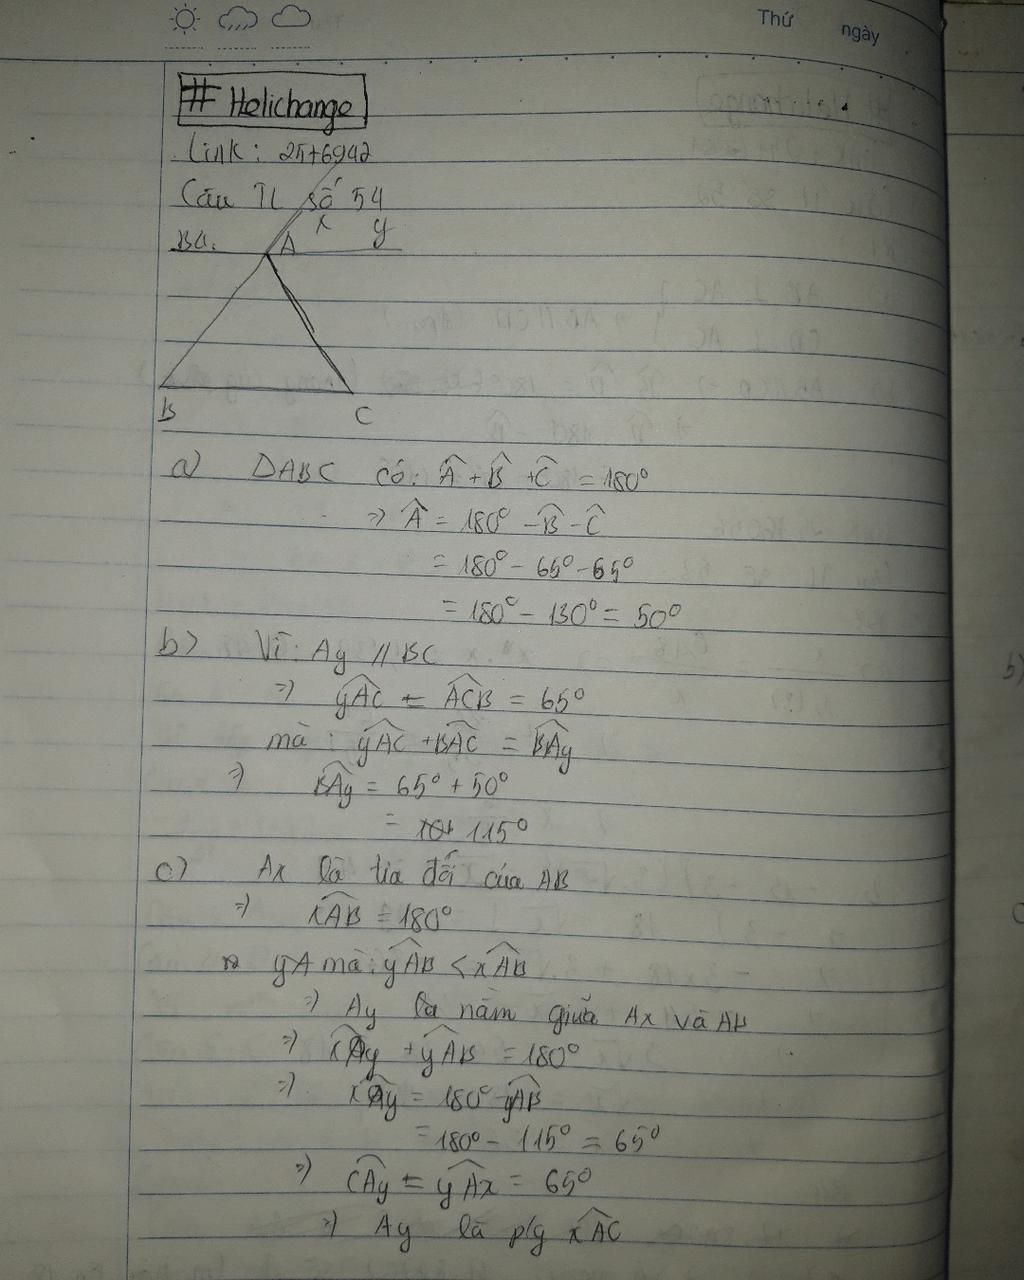 Thứ ngày
# Helichange
Link: 25+6942
Câu TL số 54
B4. A x y
B C
a) ΔABC có: Â + B̂ + Ĉ = 180°
=> Â = 180° - B̂ - Ĉ
= 180° - 65° - 65°
= 180° - 130° = 50°
b) Vì: Ay // BC
=> yAC = ACB = 65°
mà: yAC + BAC = BAy
=> BAy = 65° + 50°
= 115°
c) Ax là tia đối của AB
=> xAB = 180°
yA mà: yAB < xAB
=> Ay là nằm giữa Ax và AB
=> xAy + yAB = 180°
=> xAy = 180° - yAB
= 180° - 115° = 65°
=> CAy = yAx = 65°
=> Ay là p/g xAC